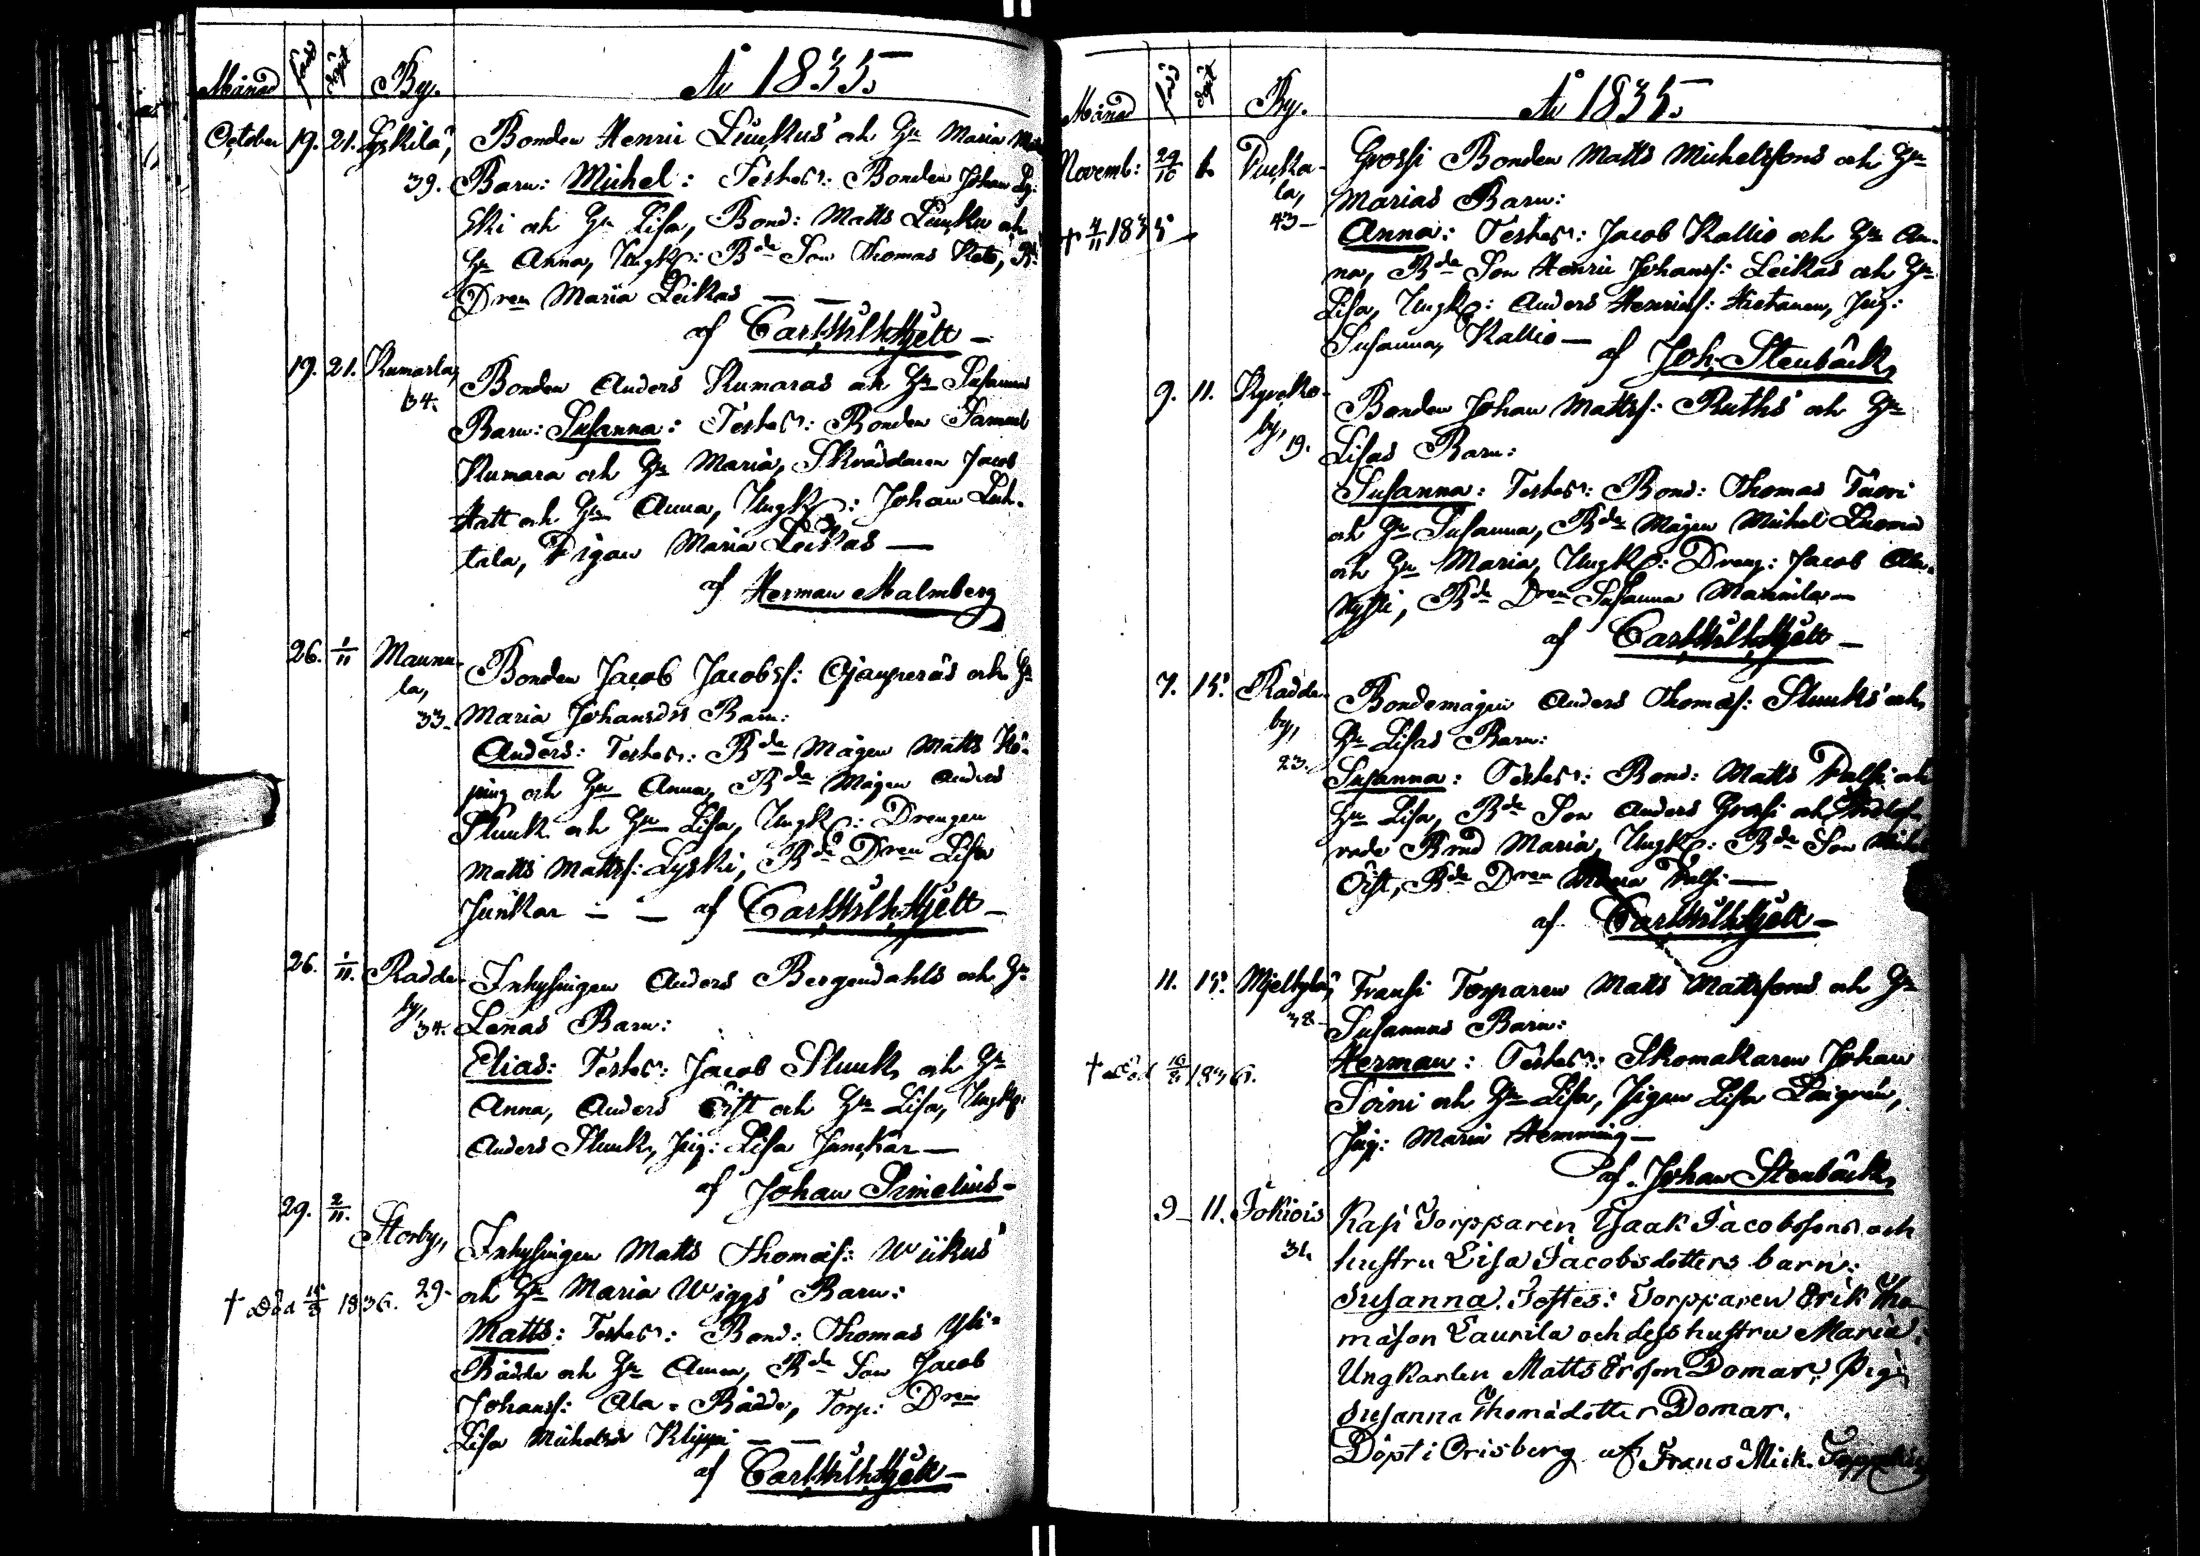 Månad född döpt By. År 1835.
October 19. 21. Lyskilä, Bonden Henric Luukus och Hu Maria
39. Barn: Michel: Testes: Bonden Johan Ly-
ski och Hu Lisa, Bond: Matts Luuku och
Hu Anna, Ungk: Bde Son Thomas Keto, Bde
Dren Maria Leikas — —
af Carl Wilh Hjelt —
19. 21. Kumarla, Bonden Anders Kumaras och Hu Susannas
34. Barn: Susanna: Testes: Bonden Samuel
Kumara och Hu Maria, Skräddaren Jacob
Hatt och Hu Anna, Ungk: Johan Leh-
tala, Pigan Maria Leikas —
af Herman Malmberg
26. 1/11 Maunu- Bonden Jacob Jacobss: Ojanperäs och Hu
la,
33. Maria Johansdrs Barn:
Anders: Testes: Bde Mågen Matts Kö-
ping och Hu Anna, Bde Mågen Anders
Sluuk och Hu Lisa, Ungk: Drengen
Matts Mattss: Lyski, Bde Dren Lisa
Junkar — — af Carl Wilh Hjelt —
26. 1/11. Radde- Inhysingen Anders Bergendahls och Hu
by,
34. Lenas Barn:
Elias: Testes: Jacob Sluuk och Hu
Anna, Anders Öist och Hu Lisa, Ungk:
Anders Sluuk, Pig: Lisa Junkar —
af Johan Simelius —
29. 2/11. Storby, Inhysingen Matts Thomass: Wiikus
† Död 15/3 1836. 29. och Hu Maria Wiggs Barn:
Matts: Testes: Bond: Thomas Yli-
Rådde och Hu Anna, Bde Son Jacob
Johanss: Ala-Rådde, Torp: Dren
Lisa Michelsdr Klippi — —
af Carl Wilh Hjelt —
Månad född döpt By. År 1835.
Novemb: 29/10 1. Pukka- Grossi Bonden Matts Michelssons och Hu
la, Marias Barn:
† 4/11 1835 43 — Anna: Testes: Jacob Kallio och Hu An-
na, Bde Son Henric Johanss: Leikas och Hu
Lisa, Ungk: Anders Henrics: Hietanen, Pig:
Susanna Kallio — af Joh. Stenbäck,
9. 11. Kyroko- Bonden Johan Mattss: Ruths och Hu
by, 19. Lisas Barn:
Susanna: Testes: Bond: Thomas Tuori
och Hu Susanna, Bde Mågen Michel Luoma
och Hu Maria, Ungk: Dreng: Jacob Ala-
Bde Dren Susanna Marsinila —
af Carl Wilh Hjelt —
7. 15. Radde- Bondemågen Anders Thomass: Sluuks och
by, Hu Lisas Barn:
23. Susanna: Testes: Bond: Matts Palfi och
Hu Lisa, Bde Son Anders Grossi och Trolof-
vade Brud Maria, Ungk: Bde Son Michel
Öist, Bde Dren Maria Palfi —
af Carl Wilh Hjelt —
11. 15. Mjelkylä, Fransi Torparen Matts Mattssons och Hu
38. Susannas Barn:
† Död 16/3 1836. Herman: Testes: Skomakaren Johan
Soini och Hu Lisa, Pigan Lisa Löfgren,
Pig: Maria Hemming —
af. Johan Stenbäck,
9 11. Jokiois Kasi Torpparen Isaak Jacobssons och
31. hustru Lisa Jacobsdotters barn:
Susanna. Testes: Torpparen Erik Tho-
mason Laurila och dess hustru Maria.
Ungkarlen Matts Ersson Domar, Pig:
Susanna Thomädotter Domar.
Döpt i Orisberg af Frans Mich. Toppelius